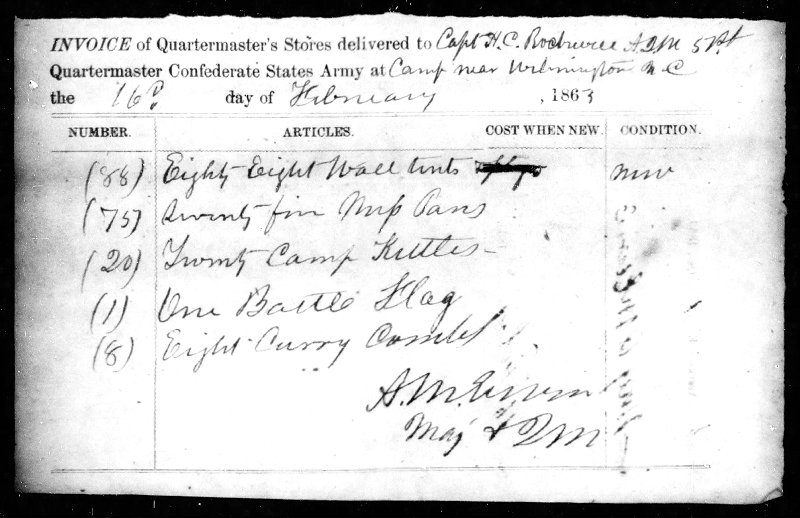 INVOICE of Quartermaster's Stores delivered to Capt H. C. Rockwell A Q M 51st
Quartermaster Confederate States Army at Camp near Wilmington N C
the 16th day of February, 1863
NUMBER. ARTICLES. COST WHEN NEW. CONDITION.
(88) Eighty Eight Wall tents new
(75) Seventy five Mess Pans
(20) Twenty Camp Kettles
(1) One Battle Flag
(8) Eight Curry Combs
A. M. Erwin
Maj & QM